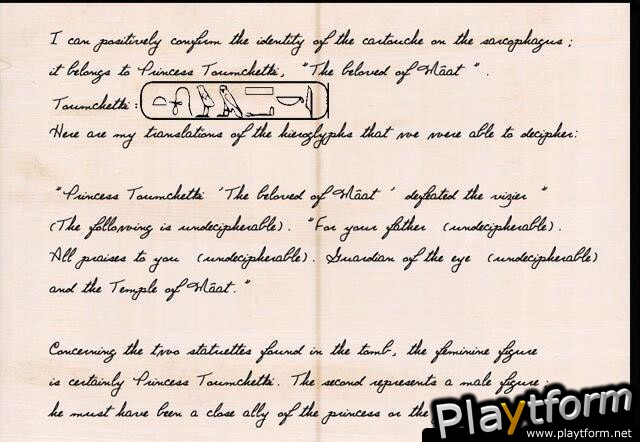 I can positively confirm the identity of the cartouche on the sarcophagus ;
it belongs to Princess Toumchetti, "The beloved of Mâat ".
Toumchetti :
Here are my translations of the hieroglyphs that we were able to decipher:
"Princess Toumchetti 'The beloved of Mâat ' defeated the vizier "
(The following is undecipherable). "For your father (undecipherable).
All praises to you (undecipherable). Guardian of the eye (undecipherable)
and the Temple of Mâat."
Concerning the two statuettes found in the tomb, the feminine figure
is certainly Princess Toumchetti. The second represents a male figure ;
he must have been a close ally of the princess or the
Playtform
www.playtform.net